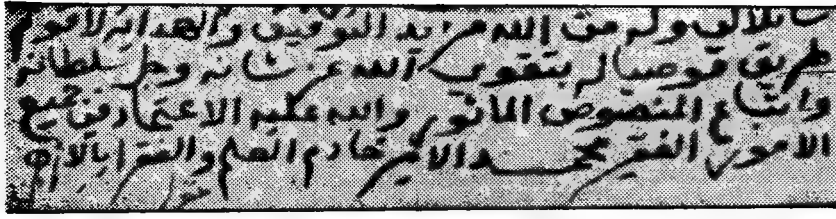 سائلا لي وله من الله مزيد التوفيق والهداية لاقوم
طريق موصيا له بتقوى الله عز شانه وجل سلطانه
واتباع المنصوص الماثور والله عليه الاعتماد في جميع
الامور الفقير محمد الامير خادم العلم والفقرا بالازهر